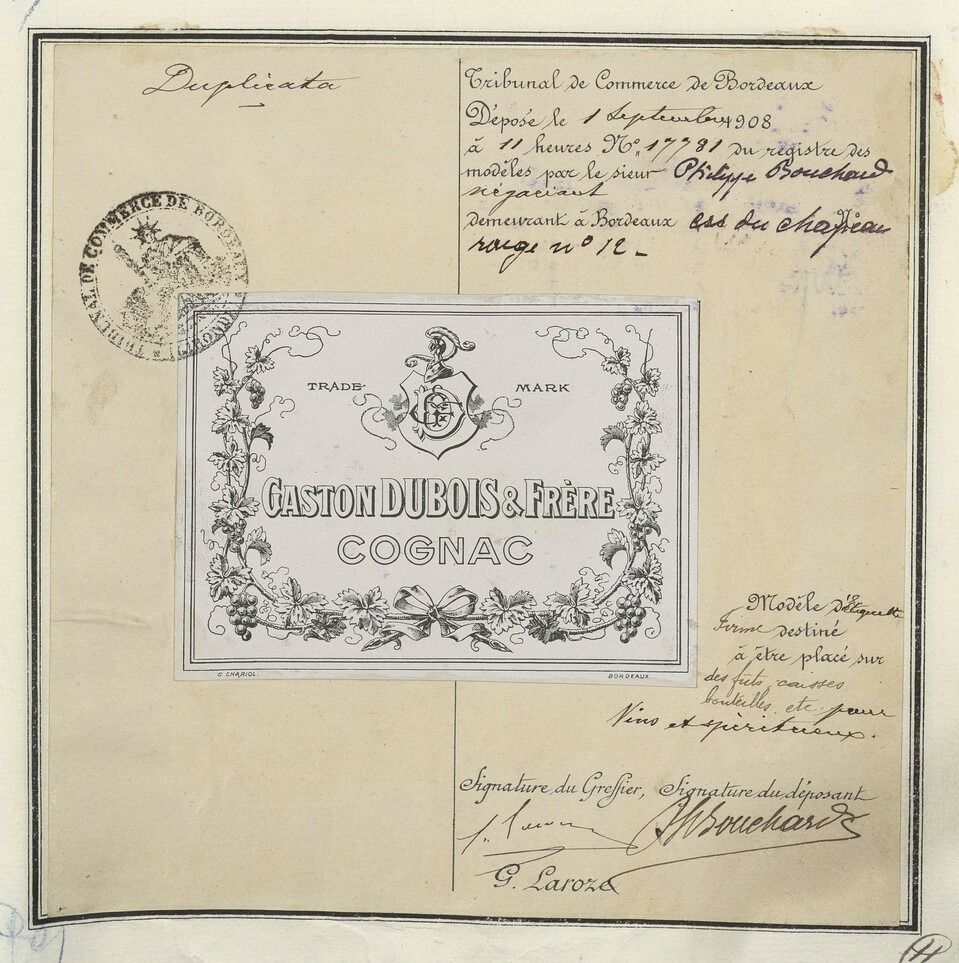 Duplicata
Tribunal de Commerce de Bordeaux
Déposé le 1 Septembre 1908
à 11 heures N° 17781 du registre des
modèles par le sieur Philippe Bouchard
négociant
demeurant à Bordeaux crs du chapeau
rouge n° 12_
TRIBUNAL DE COMMERCE DE BORDEAUX
(GIRONDE)
TRADE MARK
GASTON DUBOIS & FRÈRE
COGNAC
G. CHARIOL. BORDEAUX
Modèle d'Etiquette
forme destiné
à être placé sur
des fûts, caisses
bouteilles, etc. pour
Vins et spiritueux.
Signature du Greffier, Signature du déposant
PhBouchard
G. Laroze